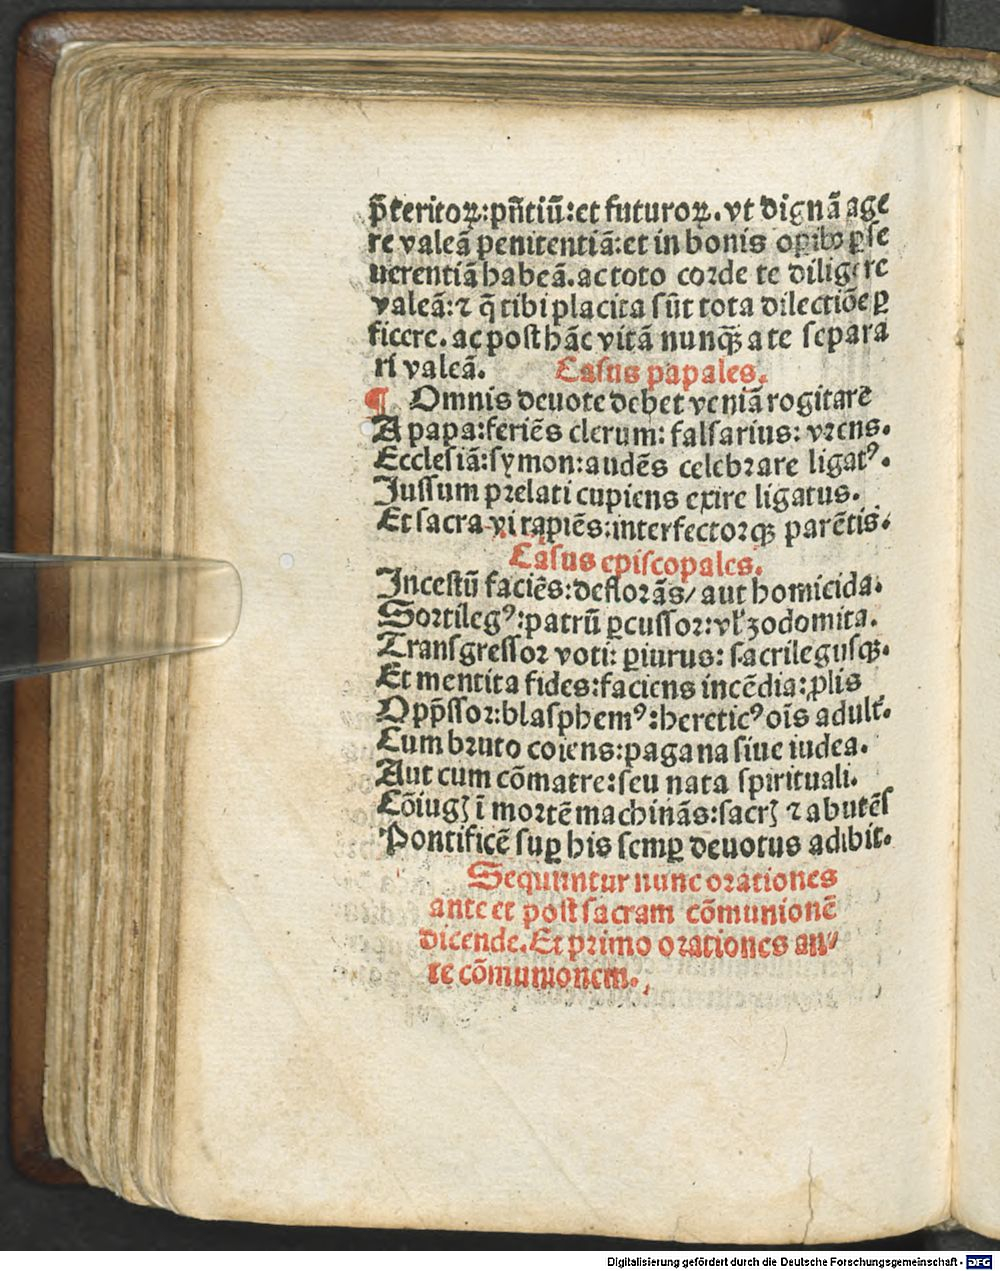 p̄teritoꝝ: pn̄tiū: et futuroꝝ. vt dignā age
re valeā penitentiā: et in bonis opib⁹ ꝑse
uerentiā habeā. ac toto corde te diligere
valeā: ⁊ q̄ tibi placita sūt tota dilectiōe ꝑ
ficere. ac post hāc vitā nunqꝫ a te separa
ri valeā. Casus papales.
¶ Omnis deuote debet veniā rogitare
A papa: feriēs clerum: falsarius: vrens.
Ecclesiā: symon: audēs celebrare ligat⁹.
Jussum prelati cupiens exire ligatus.
Et sacra vi rapiēs: interfectorqꝫ parētis.
Casus episcopales.
Incestū faciēs: deflorās/ aut homicida.
Sortileg⁹: patrū ꝑcussor: vl' zodomita.
Transgressor voti: ꝑiurus: sacrilegusqꝫ.
Et mentita fides: faciens incēdia: ꝓlis
Opp̄ssor: blasphem⁹: heretic⁹ oīs adult̄.
Cum bruto coiens: pagana siue iudea.
Aut cum cōmatre: seu nata spirituali.
Cōiugꝭ ī mortē machinās: sacrꝭ ⁊ abutēs
Pontificē suꝑ his semꝑ deuotus adibit.
Sequuntur nunc orationes
ante et post sacram cōmunionē
dicende. Et primo orationes an⸗
te cōmunionem.
Digitalisierung gefördert durch die Deutsche Forschungsgemeinschaft - DFG